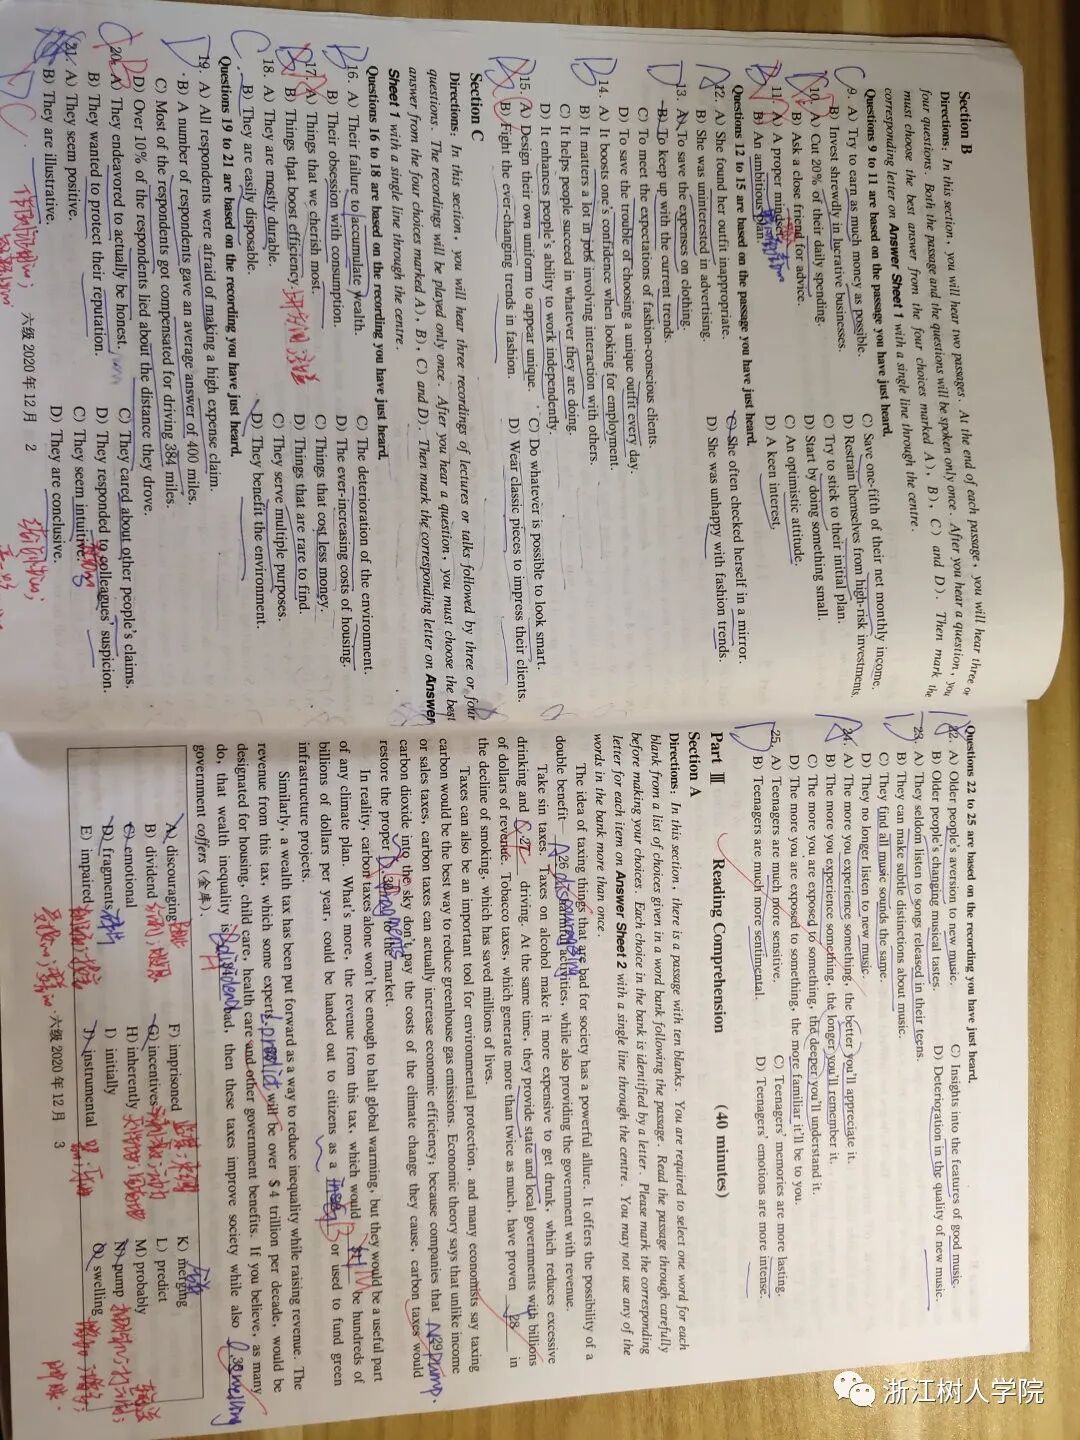 Section B
Directions: In this section, you will hear two passages. At the end of each passage, you will hear three or
four questions. Both the passage and the questions will be spoken only once. After you hear a question, you
must choose the best answer from the four choices marked A), B), C) and D). Then mark the
corresponding letter on Answer Sheet 1 with a single line through the centre.
Questions 9 to 11 are based on the passage you have just heard.
C 9. A) Try to earn as much money as possible. C) Save one-fifth of their net monthly income.
B) Invest shrewdly in lucrative businesses. D) Restrain themselves from high-risk investments.
10. A) Cut 20% of their daily spending. C) Try to stick to their initial plan.
B) Ask a close friend for advice. D) Start by doing something small.
11. A) A proper mindset. C) An optimistic attitude.
B) An ambitious plan. D) A keen interest.
Questions 12 to 15 are based on the passage you have just heard.
A 12. A) She found her outfit inappropriate. C) She often checked herself in a mirror.
B) She was uninterested in advertising. D) She was unhappy with fashion trends.
D 13. A) To save the expenses on clothing.
B) To keep up with the current trends.
C) To meet the expectations of fashion-conscious clients.
D) To save the trouble of choosing a unique outfit every day.
B 14. A) It boosts one's confidence when looking for employment.
B) It matters a lot in jobs involving interaction with others.
C) It helps people succeed in whatever they are doing.
D) It enhances people's ability to work independently.
15. A) Design their own uniform to appear unique. C) Do whatever is possible to look smart.
B) Fight the ever-changing trends in fashion. D) Wear classic pieces to impress their clients.
Section C
Directions: In this section, you will hear three recordings of lectures or talks followed by three or four
questions. The recordings will be played only once. After you hear a question, you must choose the best
answer from the four choices marked A), B), C) and D). Then mark the corresponding letter on Answer
Sheet 1 with a single line through the centre.
Questions 16 to 18 are based on the recording you have just heard.
B 16. A) Their failure to accumulate wealth. C) The deterioration of the environment.
B) Their obsession with consumption. D) The ever-increasing costs of housing.
17. A) Things that we cherish most. C) Things that cost less money.
B) Things that boost efficiency. D) Things that are rare to find.
18. A) They are mostly durable. C) They serve multiple purposes.
B) They are easily disposable. D) They benefit the environment.
Questions 19 to 21 are based on the recording you have just heard.
D 19. A) All respondents were afraid of making a high expense claim.
B) A number of respondents gave an average answer of 400 miles.
C) Most of the respondents got compensated for driving 384 miles.
D) Over 10% of the respondents lied about the distance they drove.
20. A) They endeavored to actually be honest. C) They cared about other people's claims.
B) They wanted to protect their reputation. D) They responded to colleagues' suspicion.
21. A) They seem positive. C) They seem intuitive.
B) They are illustrative. D) They are conclusive.
六级 2020 年 12 月 2
Questions 22 to 25 are based on the recording you have just heard.
22. A) Older people's aversion to new music. C) Insights into the features of good music.
B) Older people's changing musical tastes. D) Deterioration in the quality of new music.
D 23. A) They seldom listen to songs released in their teens.
B) They can make subtle distinctions about music.
C) They find all music sounds the same.
D) They no longer listen to new music.
A 24. A) The more you experience something, the better you'll appreciate it.
B) The more you experience something, the longer you'll remember it.
C) The more you are exposed to something, the deeper you'll understand it.
D) The more you are exposed to something, the more familiar it'll be to you.
D 25. A) Teenagers are much more sensitive. C) Teenagers' memories are more lasting.
B) Teenagers are much more sentimental. D) Teenagers' emotions are more intense.
Part Ⅲ Reading Comprehension (40 minutes)
Section A
Directions: In this section, there is a passage with ten blanks. You are required to select one word for each
blank from a list of choices given in a word bank following the passage. Read the passage through carefully
before making your choices. Each choice in the bank is identified by a letter. Please mark the corresponding
letter for each item on Answer Sheet 2 with a single line through the centre. You may not use any of the
words in the bank more than once.
The idea of taxing things that are bad for society has a powerful allure. It offers the possibility of a
double benefit— A 26 discouraging harmful activities, while also providing the government with revenue.
Take sin taxes. Taxes on alcohol make it more expensive to get drunk, which reduces excessive
drinking and 27 driving. At the same time, they provide state and local governments with billions
of dollars of revenue. Tobacco taxes, which generate more than twice as much, have proven 28 in
the decline of smoking, which has saved millions of lives.
Taxes can also be an important tool for environmental protection, and many economists say taxing
carbon would be the best way to reduce greenhouse gas emissions. Economic theory says that unlike income
or sales taxes, carbon taxes can actually increase economic efficiency; because companies that N 29 pump
carbon dioxide into the sky don't pay the costs of the climate change they cause, carbon taxes would
restore the proper D 30 fragments to the market.
In reality, carbon taxes alone won't be enough to halt global warming, but they would be a useful part
of any climate plan. What's more, the revenue from this tax, which would be hundreds of
billions of dollars per year, could be handed out to citizens as a B or used to fund green
infrastructure projects.
Similarly, a wealth tax has been put forward as a way to reduce inequality while raising revenue. The
revenue from this tax, which some experts predict will be over $ 4 trillion per decade, would be
designated for housing, child care, health care and other government benefits. If you believe, as many
do, that wealth inequality is dividend bad, then these taxes improve society while also swelling
government coffers (金库).
A) discouraging F) imprisoned K) merging
B) dividend G) incentives L) predict
C) emotional H) inherently M) probably
D) fragments I) initially N) pump
E) impaired J) instrumental O) swelling
·六级 2020 年 12 月 3
浙江树人学院